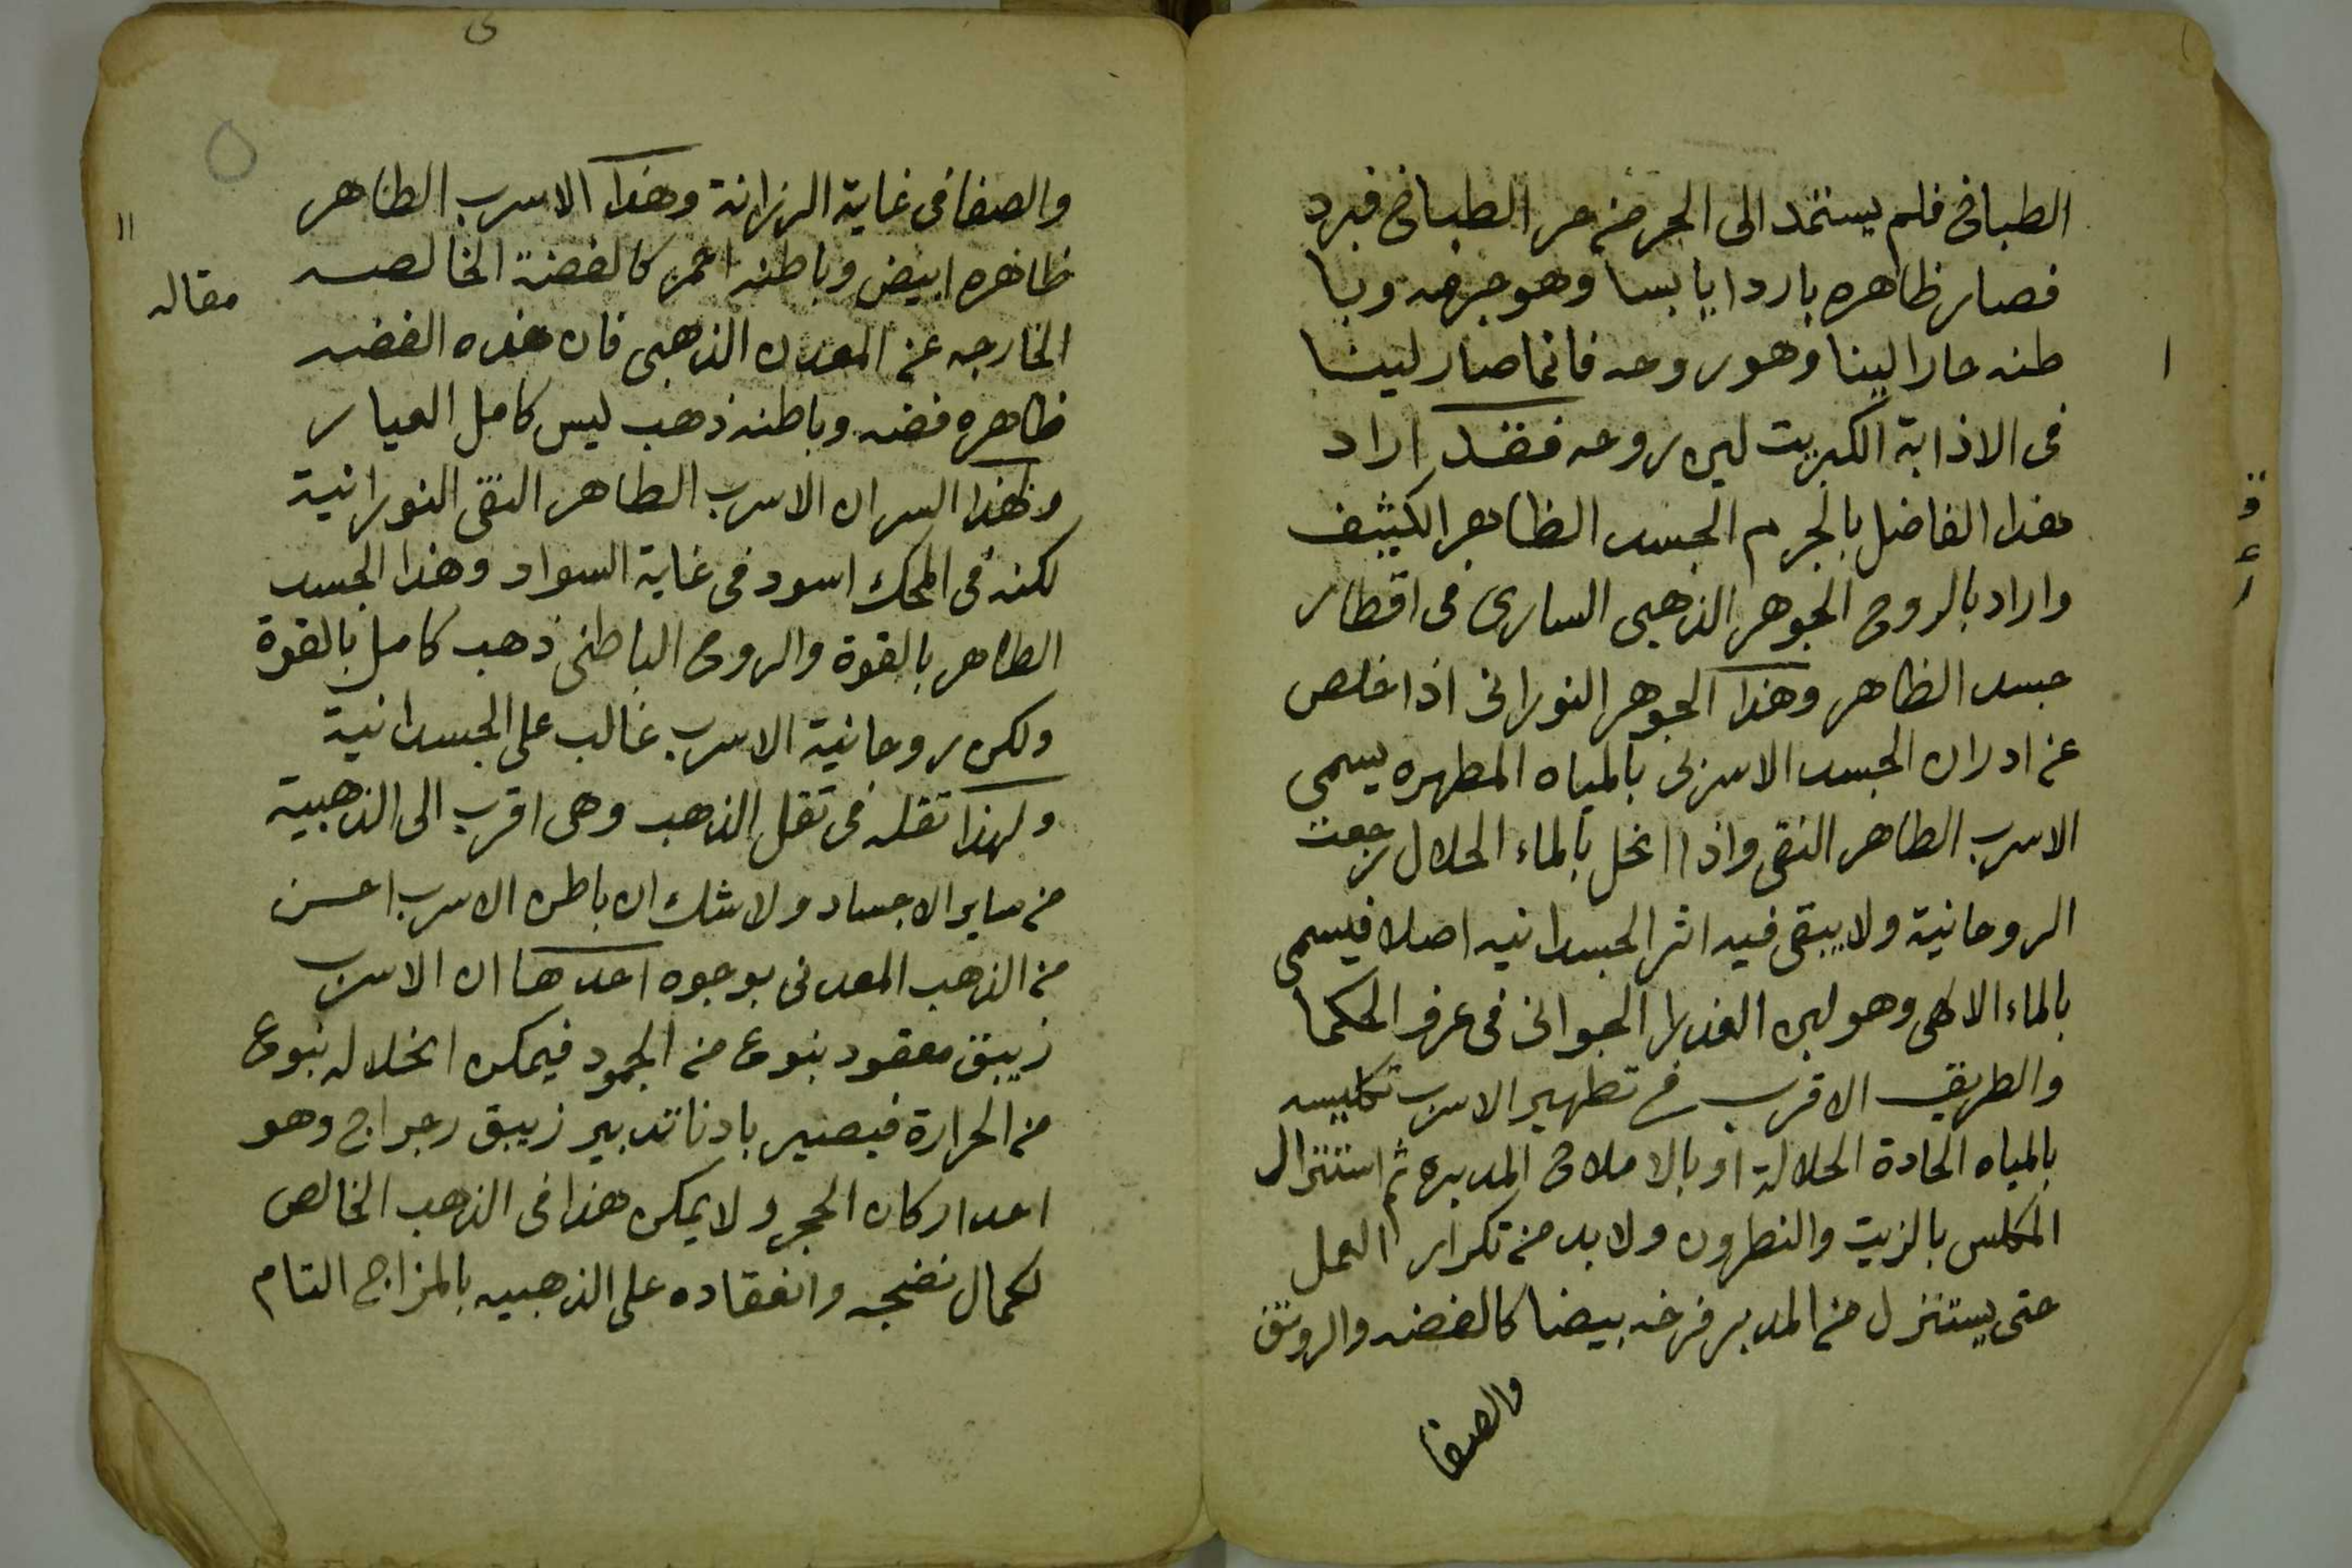 الطباخ فلم يستمد الى الجرم من حر الطباخ فبرد
فصار ظاهره باردا يابسا وهو جرمه وبا
طنه حارا لينا وهو روحه فانما صار لينا
فى الاذابة الكبريت لين روحه فقد اراد
هذا الفاضل بالجرم الجسد الظاهر الكثيف
واراد بالروح الجوهر الذهبى السارى فى اقطار
جسد الظاهر وهذا الجوهر النورانى اذا خلص
عن ادران الجسد الاسربى بالمياه المطهره يسمى
الاسرب الطاهر النقى واذا انحل بالماء الحلال رجعت
الروحانية ولا يبقى فيه اثر الجسدانيه اصلا فيسمى
بالماء الالهى وهو لبن العذرا الجوانى فى عرف الحكما
والطريق الاقرب فى تطهير الاسرب تكليسه
بالمياه الحادة الحلالة او بالاملاح المدبره ثم استنزال
المكلس بالزيت والنطرون ولا بد من تكرار العمل
حتى يستنزل من المدبر فرخه بيضا كالفضه والرونق
والصفا
والصفا فى غاية الرزانة وهذا الاسرب الطاهر
ظاهره ابيض وباطنه احمر كالفضة الخالصه
الخارجه عن المعدن الذهبى فان هذه الفضه
ظاهره فضه وباطنه ذهب ليس كامل العيار
ولهذا السر ان الاسرب الطاهر النقى النورانية
لكنه فى المحك اسود فى غاية السواد وهذا الجسد
الظاهر بالقوة والروح الباطنى ذهب كامل بالقوة
ولكن روحانية الاسرب غالب على الجسدانية
ولهذا تقله فى تقل الذهب وهى اقرب الى الذهبية
من ساير الاجساد ولا شك ان باطن الاسرب احسن
من الذهب المعدنى بوجوه احدها ان الاسرب
زيبق معقود بنوع من الجمود فيمكن انحلاله بنوع
من الحرارة فيصير بادنا تدبير زيبق رجراج وهو
احد اركان الحجر ولا يمكن هذا فى الذهب الخالص
لكمال نضجه وانعقاده على الذهبيه بالمزاج التام
١١
مقاله